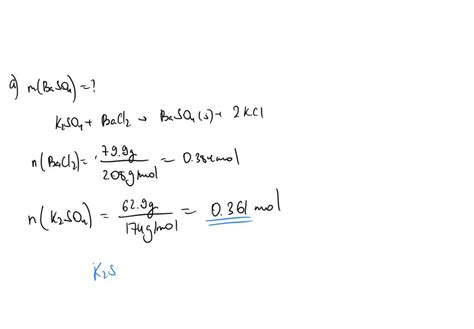 a) m(BaSO₄)=?
K₂SO₄ + BaCl₂ → BaSO₄(s) + 2KCl
n(BaCl₂)= 79.9g / 208g/mol = 0.384mol
n(K₂SO₄) = 62.9g / 174g/mol = 0.361 mol
K₂S